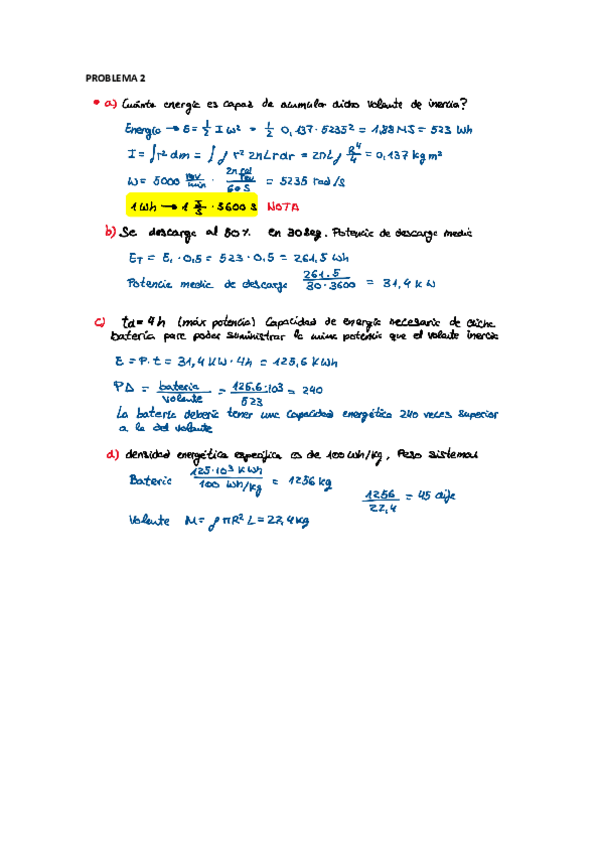 PROBLEMA 2
• a) Cuánta energía es capaz de acumular dicho volante de inercia?
Energía → E = 1/2 I ω² = 1/2 0,137 · 5235² = 1,88 MJ = 523 Wh
I = ∫r² dm = ∫ρ r² 2πLr dr = 2πLρ R⁴/4 = 0,137 kg m²
ω = 5000 rev/min · 2π rad/rev / 60 s = 5235 rad/s
1 Wh → 1 J/s · 3600 s NOTA
b) Se descarga al 50% en 30 seg. Potencia de descarga media
E_T = E_i · 0,5 = 523 · 0,5 = 261,5 Wh
Potencia media de descarga 261.5 / 30·3600 = 31,4 kW
c) td = 4h (máx potencia) Capacidad de energía necesaria de dicha
batería para poder suministrar la misma potencia que el volante inercia
E = P·t = 31,4 kW · 4h = 125,6 kWh
PΔ = batería / volante = 125.6·10³ / 523 = 240
La batería debería tener una capacidad energética 240 veces superior
a la del volante
d) densidad energética específica es de 100 Wh/kg, Peso sistemas
Batería 125·10³ kWh / 100 Wh/kg = 1256 kg
1256 / 27,4 = 45
Volante M = ρ π R² L = 27,4 kg